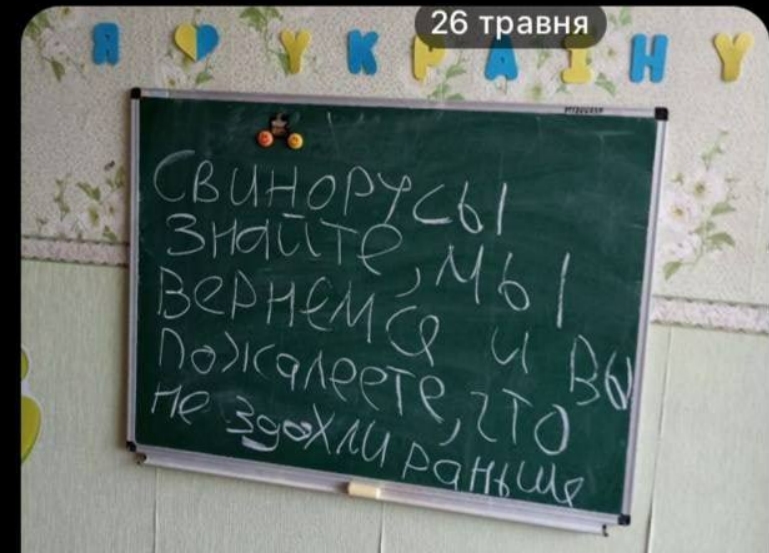 26 травня
Я УКРАЇНУ
СВИНОРУСЫ
ЗНАЙТЕ, МЫ
ВЕРНЕМСЯ И ВЫ
ПОЖАЛЕЕТЕ, ЧТО
НЕ ЗДОХЛИ РАНЬШЕ